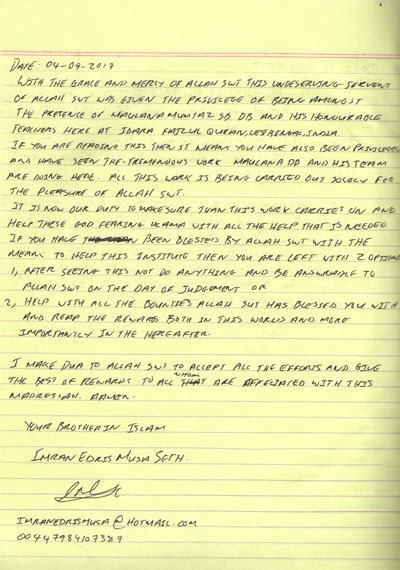 DATE: 04-09-2017
WITH THE GRACE AND MERCY OF ALLAH SWT THIS UNDESERVING SERVENT
OF ALLAH SWT WAS GIVEN THE PRIVILEGE OF BEING AMONGST
THE PRETENCE OF MAULANA MUMTAZ SB DB AND HIS HONOURABLE
TEACHERS HERE AT IDARA FAIZUL QURAN, BENGAL, INDIA.
IF YOU ARE READING THIS THEN IT MEANS YOU HAVE ALSO BEEN PRIVILEGED
AND HAVE SEEN THE TREMENDOUS WORK MAULANA DB AND HIS TEAM
ARE DOING HERE. ALL THIS WORK IS BEING CARRIED OUT SOLELY FOR
THE PLEASURE OF ALLAH SWT.
IT IS NOW OUR DUTY TO MAKE SURE THAN THIS WORK CARRIES ON AND
HELP THESE GOD FEARING ULAMA WITH ALL THE HELP THAT IS NEEDED.
IF YOU HAVE BEEN BLESSED BY ALLAH SWT WITH THE
MEANS TO HELP THIS INSTITUTE THEN YOU ARE LEFT WITH 2 OPTIONS
1, AFTER SEEING THIS NOT DO ANYTHING AND BE ANSWERABLE TO
ALLAH SWT ON THE DAY OF JUDGEMENT OR
2, HELP WITH ALL THE BOUNTIES ALLAH SWT HAS BLESSED YOU WITH
AND REAP THE REWARDS BOTH IN THIS WORLD AND MORE
IMPORTANTLY IN THE HEREAFTER.
I MAKE DUA TO ALLAH SWT TO ACCEPT ALL THE EFFORTS AND GIVE
THE BEST OF REWARDS TO ALL WHOM ARE AFFELIATED WITH THIS
MADRESSAH. AAMIN.
YOUR BROTHER IN ISLAM
IMRAN EDRIS MUSA SETH.
IMRANEDRISMUSA@HOTMAIL.COM
00447984107387